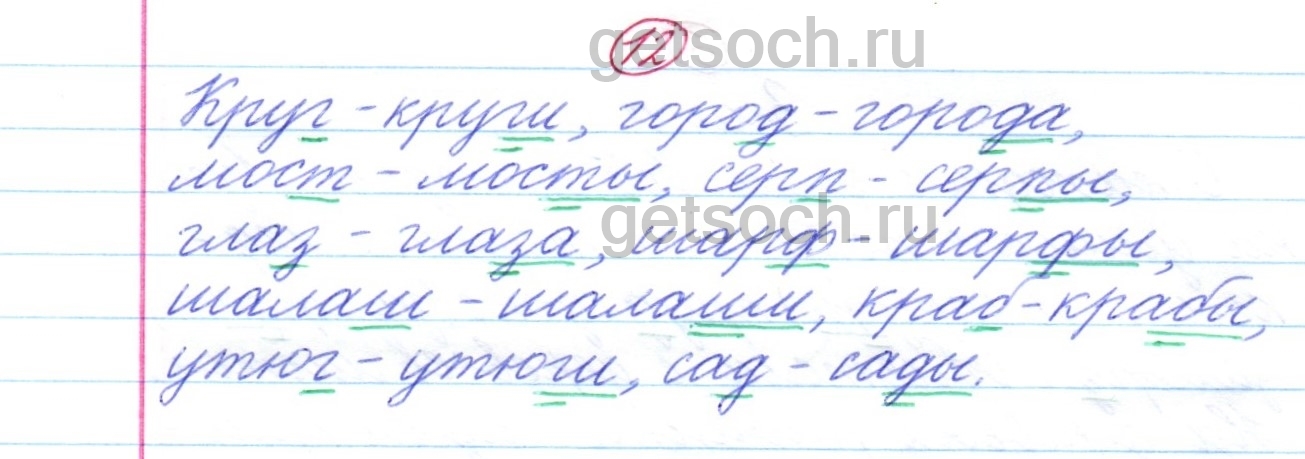 getsoch.ru
12
Круг - круги, город - города,
мост - мосты, серп - серпы,
getsoch.ru
глаз - глаза, шарф - шарфы,
шалаш - шалаши, краб - крабы,
утюг - утюги, сад - сады.